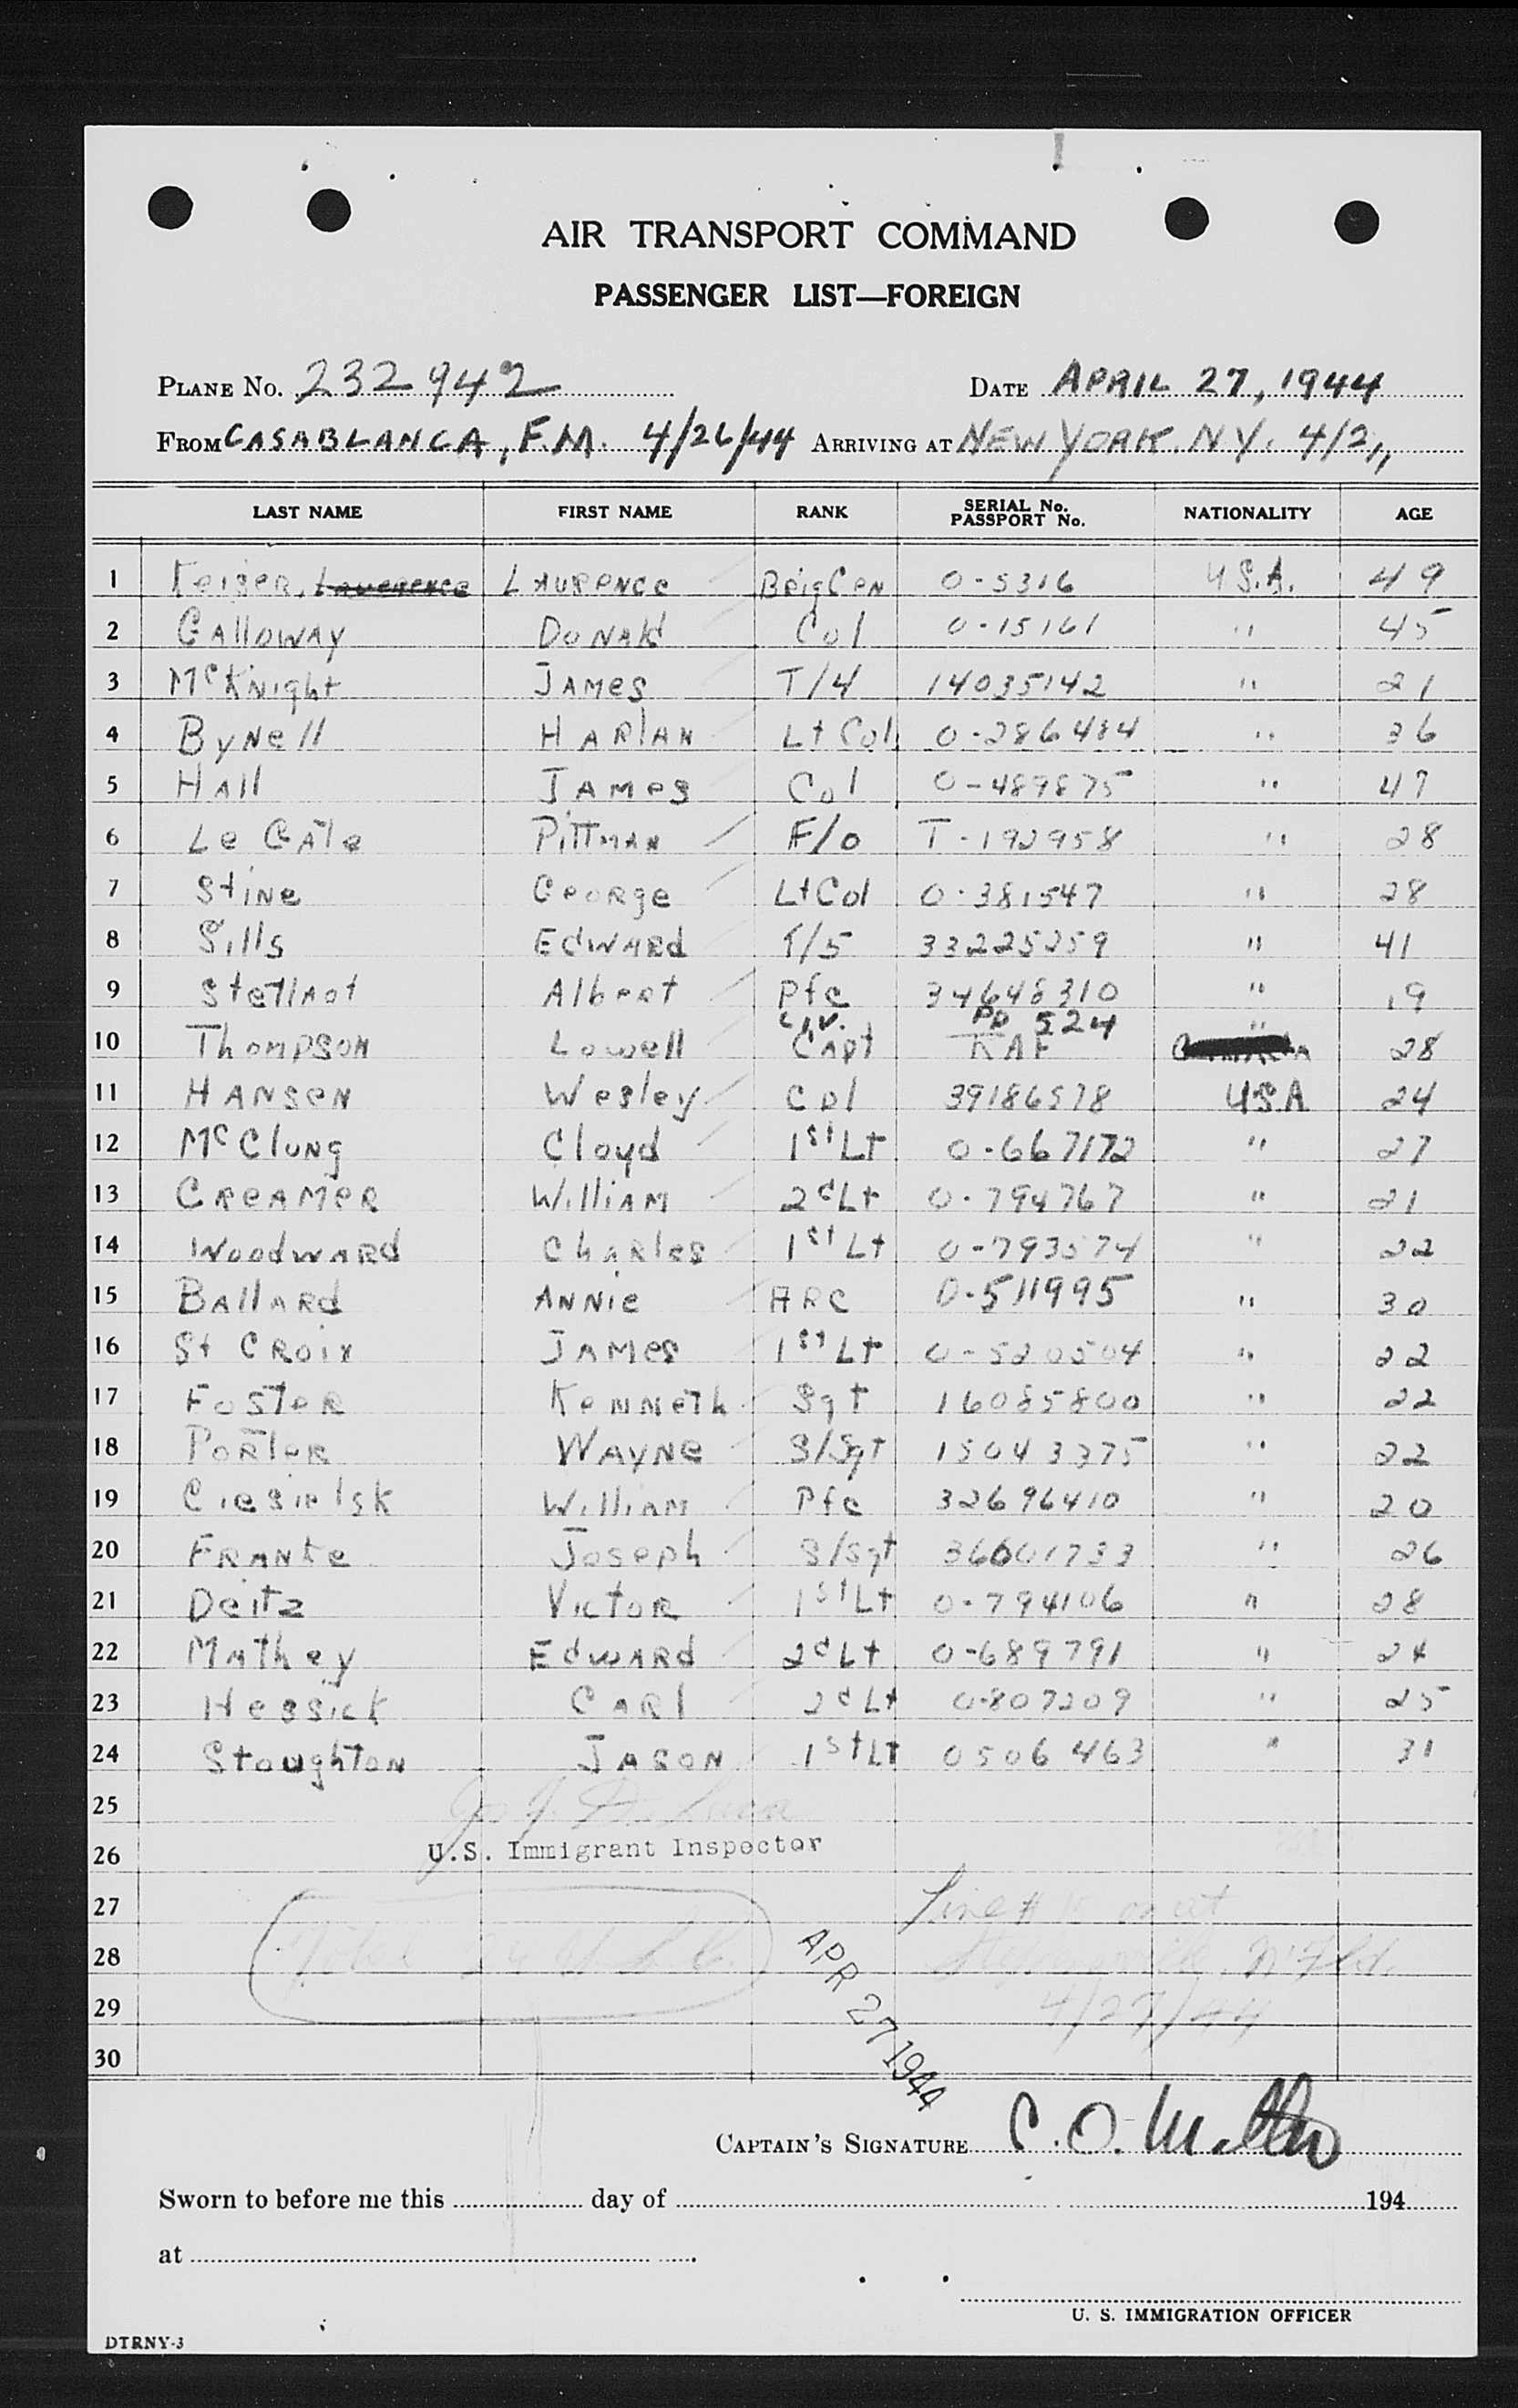 AIR TRANSPORT COMMAND
PASSENGER LIST—FOREIGN
PLANE NO. 232942 DATE APRIL 27, 1944
FROM CASABLANCA, F.M. 4/26/44 ARRIVING AT NEW YORK, N.Y. 4/2
LAST NAME FIRST NAME RANK SERIAL No. PASSPORT No. NATIONALITY AGE
1 Keiser, Lauerence Laurence Brig Gen 0-5316 U.S.A. 49
2 Galloway Donald Col 0-15161 " 45
3 McKnight James T/4 14035142 " 21
4 Bynell Harlan Lt Col 0-286484 " 36
5 Hall James Col 0-489875 " 47
6 Le Gate Pittman F/O T-192958 " 28
7 Stine George Lt Col 0-381547 " 28
8 Sills Edward T/5 33225259 " 41
9 Stellmot Albert Pfc 34648310 " 19
10 Thompson Lowell Civ. Capt PP 524 RAF " 28
11 Hansen Wesley Cpl 39186578 USA 24
12 McClung Cloyd 1st Lt 0-667172 " 27
13 Creamer William 2d Lt 0-794767 " 21
14 Woodward Charles 1st Lt 0-793574 " 22
15 Ballard Annie ARC D-511995 " 30
16 St Croix James 1st Lt 0-520504 " 22
17 Foster Kenneth Sgt 16085800 " 22
18 Porter Wayne S/Sgt 15043375 " 22
19 Ciesielsk William Pfc 32696410 " 20
20 Franke Joseph S/Sgt 36001733 " 26
21 Deitz Victor 1st Lt 0-794106 " 28
22 Mathey Edward 2d Lt 0-689791 " 24
23 Hessick Carl 2d Lt 0-807209 " 25
24 Stoughton Jason 1st Lt 0506463 " 31
25
26 U.S. Immigrant Inspector
27 Line # 15 on at
28 Total 24 U.S.C. Stephenville, N'Fld.
29 4/27/44
APR 27 1944
30
CAPTAIN'S SIGNATURE C. O.
Sworn to before me this day of 194
at
U. S. IMMIGRATION OFFICER
DTRNY-3